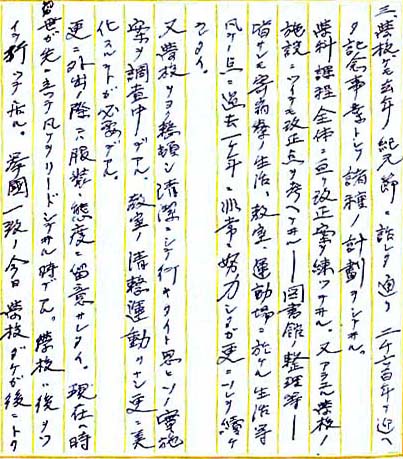 三、学校デモ去年ノ紀元節ニ話シタ通リ二千六百年ヲ迎ヘ
タ記念事業トシテ諸種ノ計劃ヲシテヰル。
学科課程全体ニ亘ツテ改正案ヲ練ツテヰル。又アラユル学校ノ
施設ニツイテモ改正点ヲ考ヘテヰル——図書館整理等——
皆サンモ寄宿寮ノ生活、教室、運動場ニ於ケル生活等
凡ユル点ニ過去一ケ年ニ非常ナ努力シタガ更ニソレヲ続ケ
ラレタイ。
又学校ヲヨリ整頓シ清潔ニシテ行キタイト思ヒソノ実施
案ヲ調査中デアル。教室ノ清整運動ヲナシ更ニ美
化スルコトガ必要デアル。
更ニ外出ノ際ニハ服装、態度ニ留意サレタイ。現在ハ時
世ガ先ニ立ツテ凡テヲリードシテヰル時デアル。学校ハ後カラ
イツ行ツテ居ル。挙國一致ノ今日学校ダケガ後ニトリ